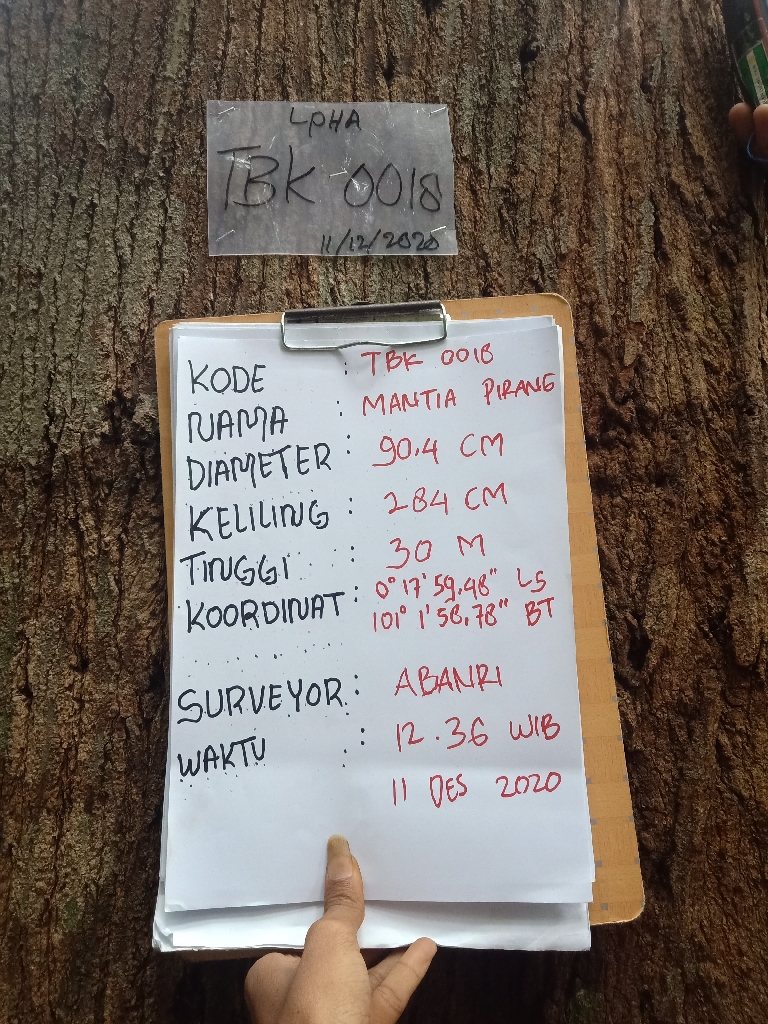 LPHA
TBK 0018
11/12/2020
KODE : TBK 0018
NAMA : MANTIA PIRANG
DIAMETER : 90.4 CM
KELILING : 284 CM
TINGGI : 30 M
KOORDINAT : 0° 17' 59,48" LS
101° 1' 58,78" BT
SURVEYOR : ABANRI
WAKTU : 12.36 WIB
11 DES 2020